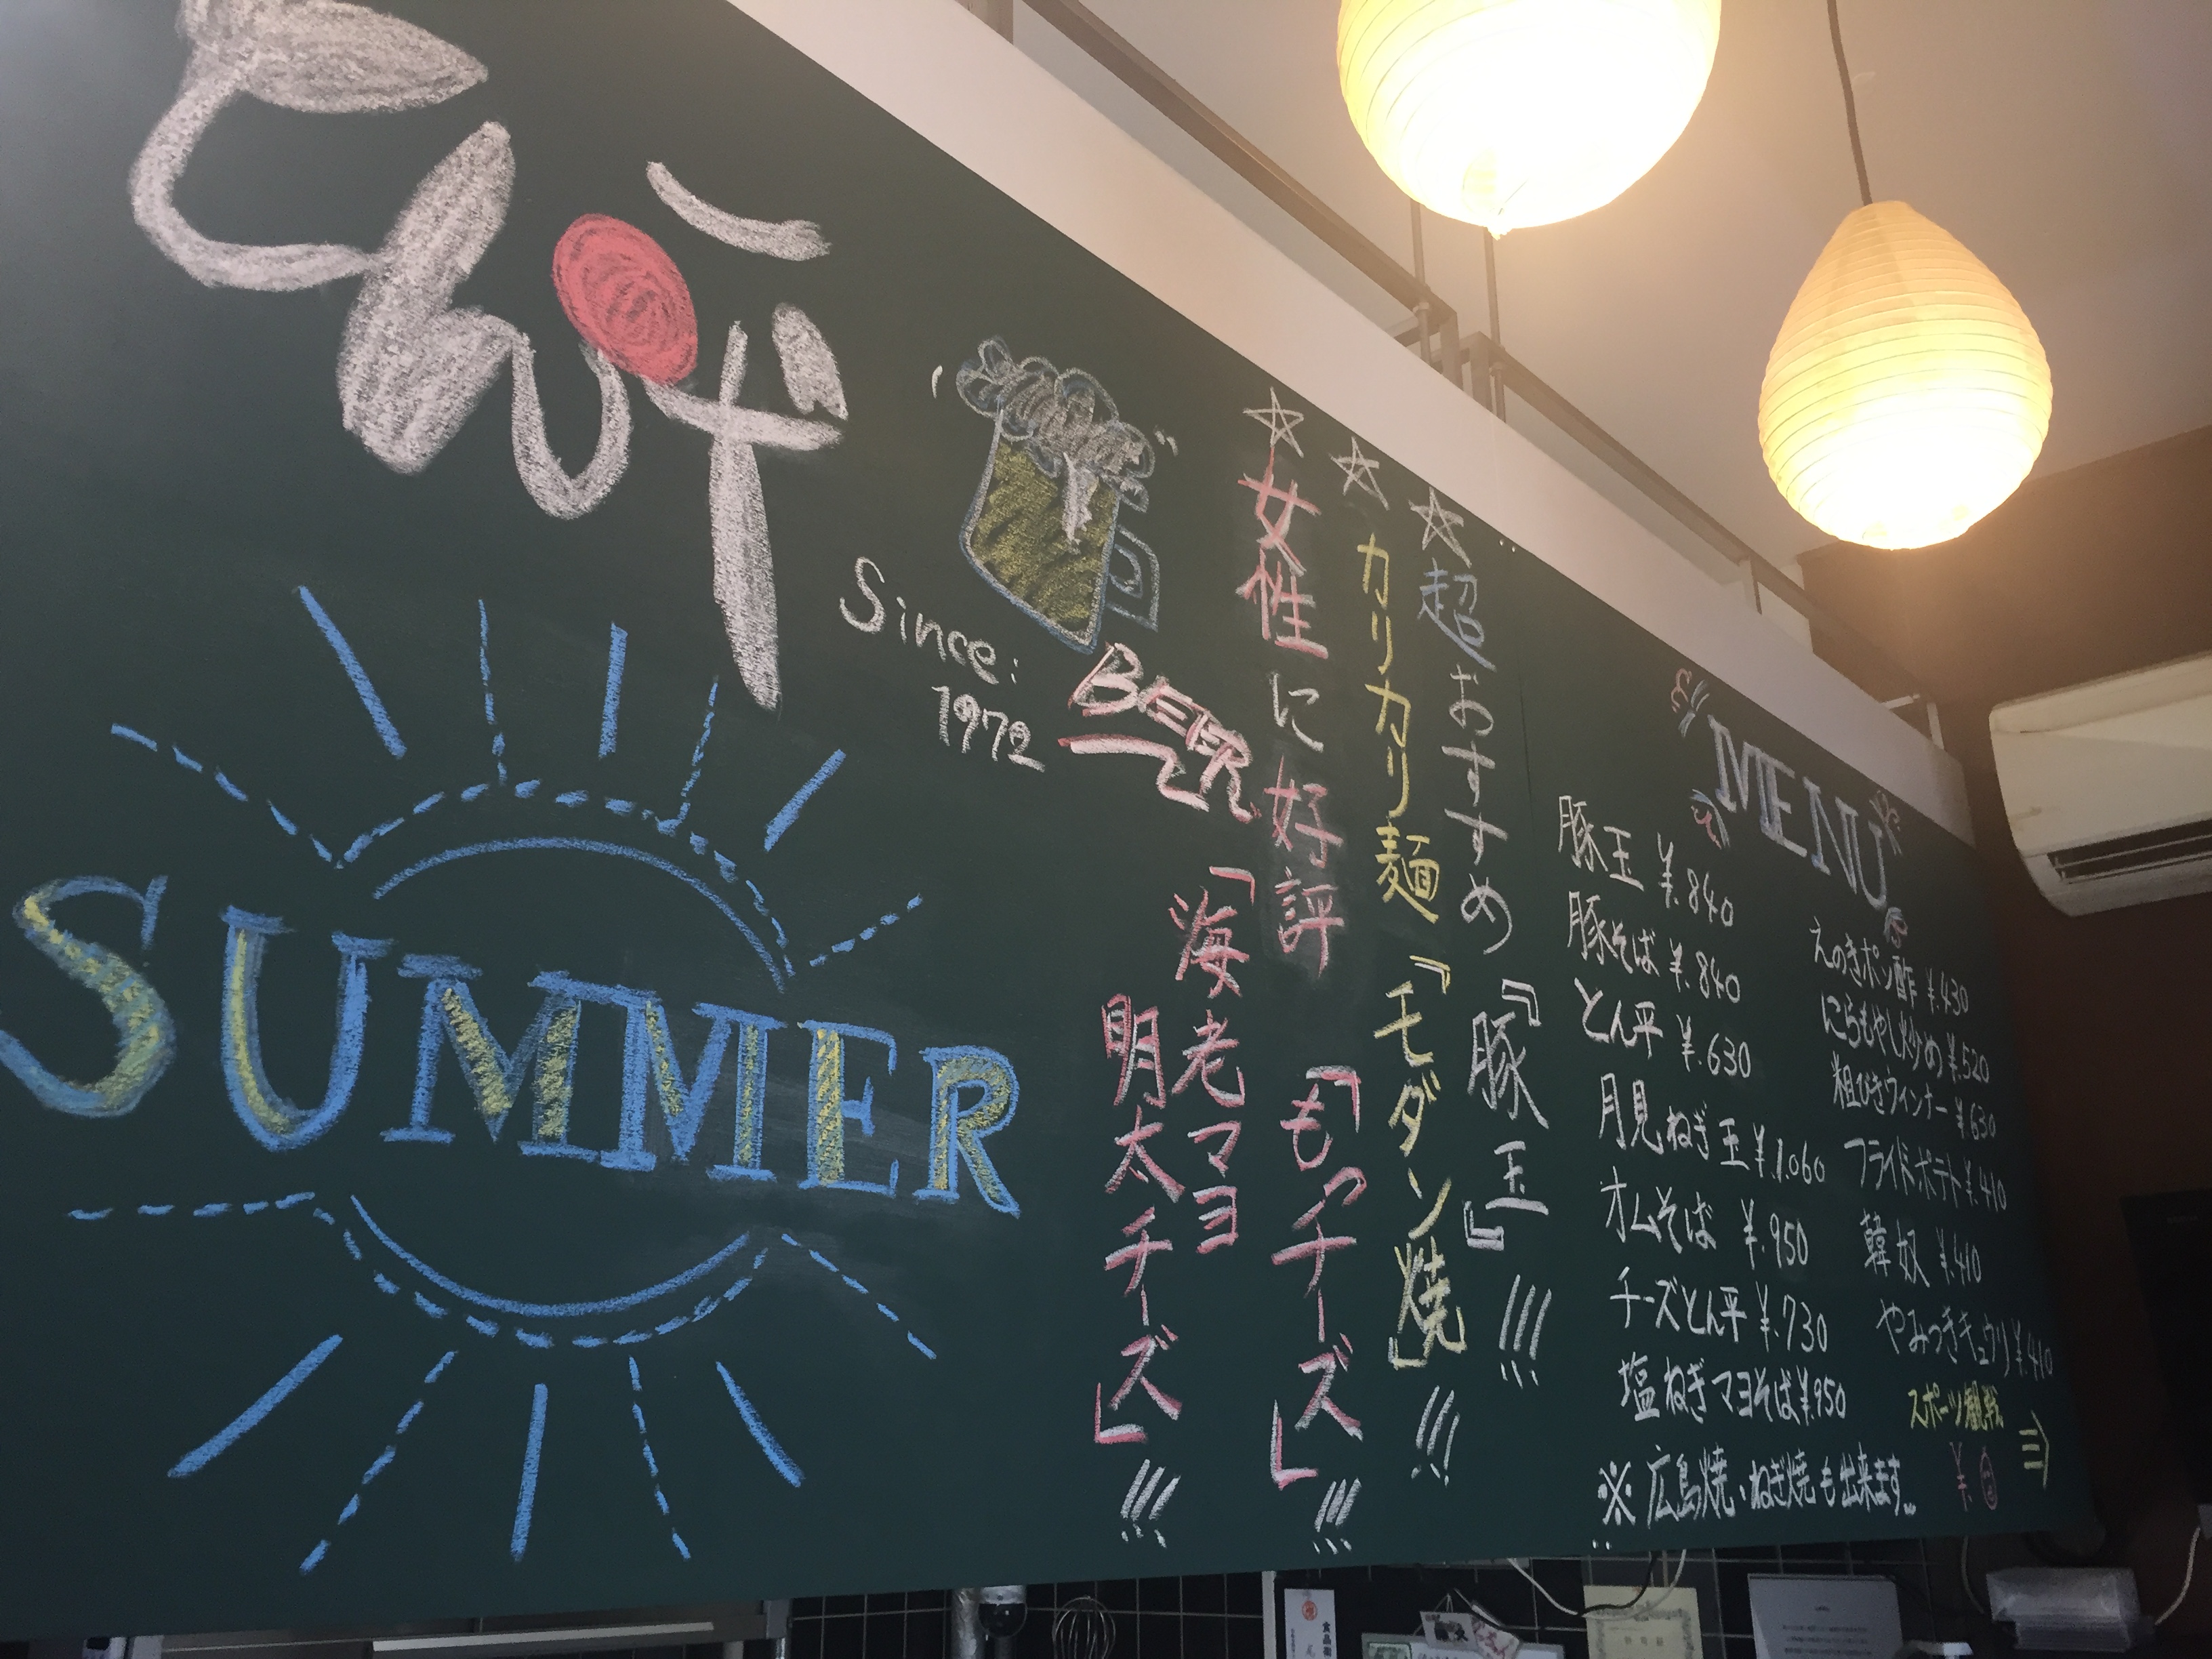 Since:
1972
BEER
SUMMER
☆超おすすめ『豚玉』!!!
☆カリカリ麺『モダン焼』!!!
☆女性に好評『もっチーズ』!!!
『海老マヨ
明太チーズ』!!!
MENU
豚玉 ¥.840
豚そば ¥.840
とん平 ¥.630
月見ねぎ玉 ¥.1.060
オムそば ¥.950
チーズとん平 ¥.730
塩ねぎマヨそば ¥.950
えのきポン酢 ¥.430
にらもやし炒め ¥.520
粗びきウィンナー ¥.630
フライドポテト ¥.410
韓奴 ¥.410
やみつきキュウリ ¥.410
スポーツ観戦
※広島焼・ねぎ焼も出来ます。